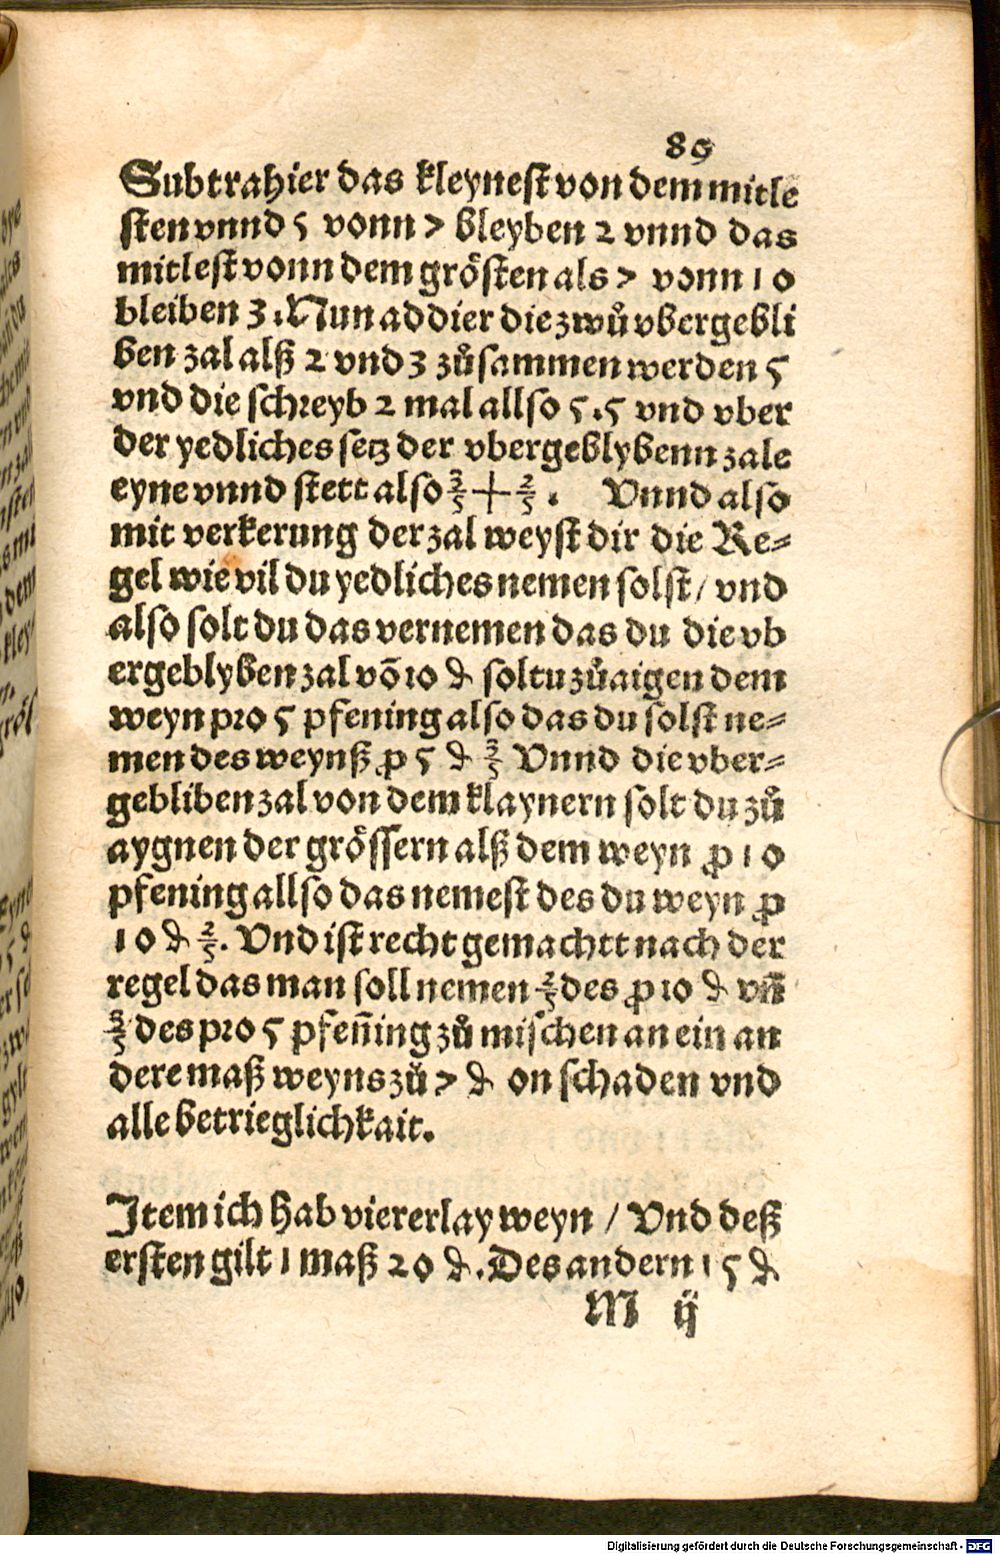 89
Subtrahier das kleynest von dem mitle
sten vnnd 5 vonn 7 bleyben 2 vnnd das
mitlest vonn dem grösten als 7 vonn 10
bleiben 3. Nun addier die zwů vbergebli
ben zal alß 2 vnd 3 zůsammen werden 5
vnd die schreyb 2 mal allso 5.5 vnd vber
der yedliches setz der vbergeblybenn zale
eyne vnnd stett also 3/5 + 2/5. Vnnd also
mit verkerung der zal weyst dir die Re⸗
gel wie vil du yedliches nemen solst / vnd
also solt du das vernemen das du die vb
ergeblyben zal võ 10 ₰ soltu zůaigen dem
weyn pro 5 pfening also das du solst ne⸗
men des weynß ꝓ 5 ₰ 3/5 Vnnd die vber⸗
gebliben zal von dem klaynern solt du zů
aygnen der grössern alß dem weyn ꝓ 10
pfening allso das nemest des du weyn ꝓ
10 ₰ 2/5. Vnd ist recht gemachtt nach der
regel das man soll nemen 2/5 des ꝓ 10 ₰ vñ
3/5 des pro 5 pfeñing zů mischen an ein an
dere maß weyns zů 7 ₰ on schaden vnd
alle betrieglichkait.
Item ich hab viererlay weyn / Vnd deß
ersten gilt 1 maß 20 ₰. Des andern 15 ₰
M ij
Digitalisierung gefördert durch die Deutsche Forschungsgemeinschaft - DFG